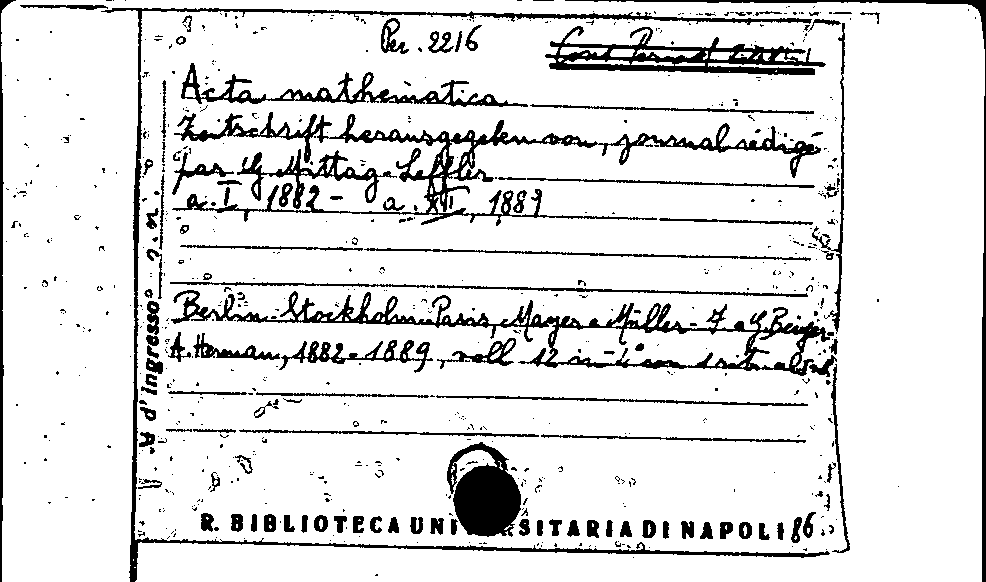 Per. 2216
Acta mathematica
Zeitschrift herausgegeben von, journal rédigé
par G Mittag-Leffler
a. I, 1882 - a. XII, 1889
Berlin Stockholm Paris, Mayer e Müller - F e G. Beijer
A. Herman, 1882-1889, voll 12 in-4° con 1 ritr.
N. d'ingresso
R. BIBLIOTECA UNIVERSITARIA DI NAPOLI 86